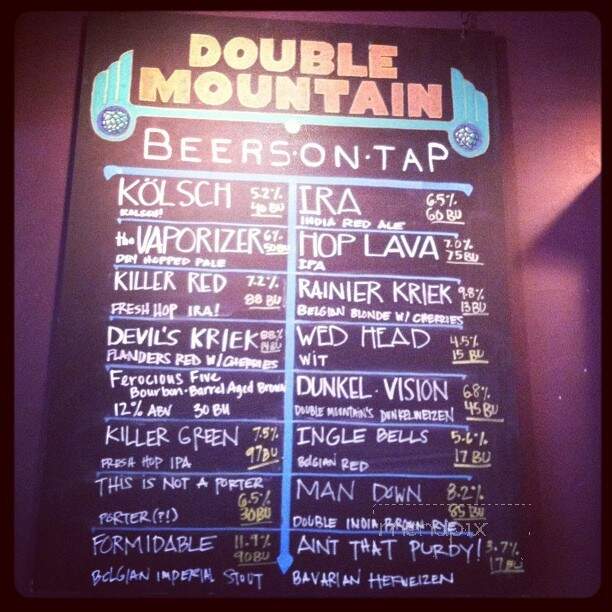 DOUBLE
MOUNTAIN
BEERS·ON·TAP
KÖLSCH 5.2%
KOLSCH! 40 BU
the VAPORIZER 6%
DRY HOPPED PALE 50 BU
KILLER RED 7.2%
88 BU
FRESH HOP IRA!
DEVIL'S KRIEK
FLANDERS RED W/ CHERRIES
FEROCIOUS FIVE
BOURBON-BARREL AGED BROWN
12% ABV 30 BU
KILLER GREEN 7.5%
97 BU
FRESH HOP IPA
THIS IS NOT A PORTER
6.5%
PORTER(?!) 30 BU
FORMIDABLE 11.9%
90 BU
BELGIAN IMPERIAL STOUT
IRA 6.5%
60 BU
INDIA RED ALE
HOP LAVA 7.0%
75 BU
IPA
RAINIER KRIEK 9.8%
13 BU
BELGIAN BLONDE W/ CHERRIES
WED HEAD 4.5%
WIT 15 BU
DUNKEL·VISION 6.8%
45 BU
DOUBLE MOUNTAIN'S DUNKELWEIZEN
INGLE BELLS 5.6%
17 BU
BELGIAN RED
MAN DOWN 8.2%
85 BU
DOUBLE INDIA BROWN RYE
menupix
AINT THAT PURDY! 3.7%
17 BU
BAVARIAN HEFWEIZEN